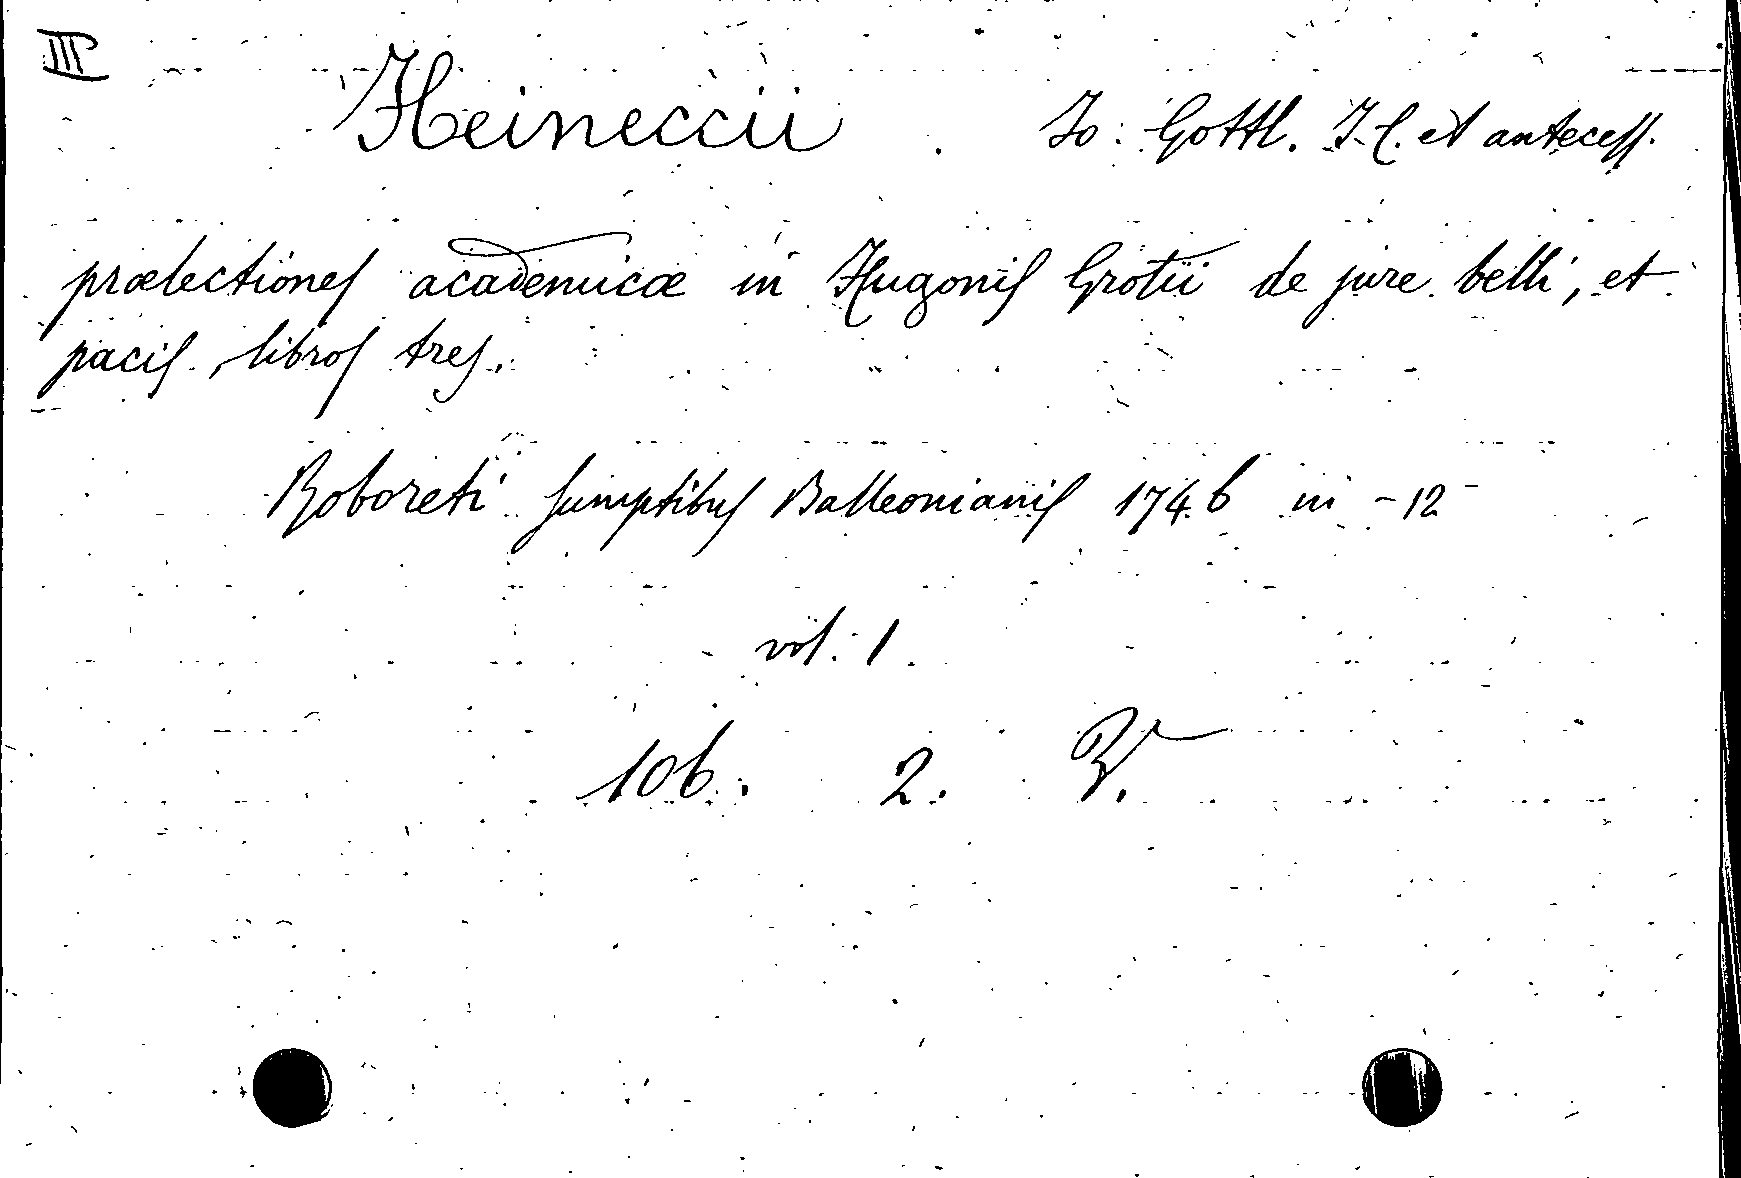 III
Heineccii Jo: Gottl. J.C. et antecess.
prælectiones academicæ in Hugonis Grotii de jure belli, et
pacis, libros tres.
Roboreti sumptibus Balleonianis 1746 in-12
vol. 1.
106. 2. V.